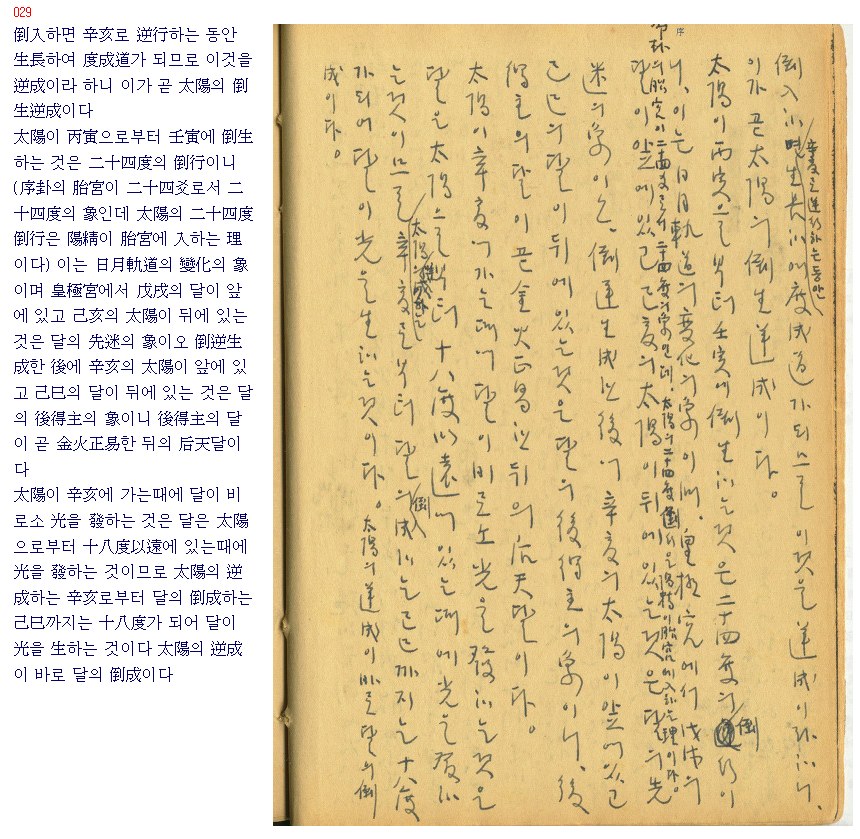 029
倒入하면 辛亥로 逆行하는 동안
生長하여 度成道가 되므로 이것을
逆成이라 하니 이가 곧 太陽의 倒
生逆成이다
太陽이 丙寅으로부터 壬寅에 倒生
하는 것은 二十四度의 倒行이니
(序卦의 胎宮이 二十四爻로서 二
十四度의 象인데 太陽의 二十四度
倒行은 陽精이 胎宮에 入하는 理
이다) 이는 日月軌道의 變化의 象
이며 皇極宮에서 戊戌의 달이 앞
에 있고 己亥의 太陽이 뒤에 있는
것은 달의 先迷의 象이오 倒逆生
成한 後에 辛亥의 太陽이 앞에 있
고 己巳의 달이 뒤에 있는 것은 달
의 後得主의 象이니 後得主의 달
이 곧 金火正易한 뒤의 后天달이
다
太陽이 辛亥에 가는때에 달이 비
로소 光을 發하는 것은 달은 太陽
으로부터 十八度以遠에 있는때에
光을 發하는 것이므로 太陽의 逆
成하는 辛亥로부터 달의 倒成하는
己巳까지는 十八度가 되어 달이
光을 生하는 것이다 太陽의 逆成
이 바로 달의 倒成이다
倒入하면 辛亥로 逆行하는 동안 生長하여 度成道가 되므로 이것을 逆成이라 하니,
이가 곧 太陽의 倒生逆成이다.
太陽이 丙寅으로부터 壬寅에 倒生하는 것은 二十四度의 倒行이
니, 이는 日月軌道의 変化의 象이며, 皇極宮에서 戊戌의
序卦의 胎宮이 二十四爻로서 二十四度의 象인데, 太陽의 二十四度 倒行은 陽精이 胎宮에 入하는 理이다.
달이 앞에 있고 己亥의 太陽이 뒤에 있는 것은 달의 先
迷의 象이오, 倒逆生成한 後에 辛亥의 太陽이 앞에 있고
己巳의 달이 뒤에 있는 것은 달의 後得主의 象이니, 後
得主의 달이 곧 金火正易한 뒤의 后天달이다.
太陽이 辛亥에 가는때에 달이 비로소 光을 發하는 것은
달은 太陽으로부터 十八度以遠에 있는때에 光을 發하
는 것이므로 太陽의 逆成하는 辛亥로부터 달의 倒成하는 己巳까지는 十八度
가 되어 달이 光을 生하는 것이다. 太陽의 逆成이 바로 달의 倒
成이다.